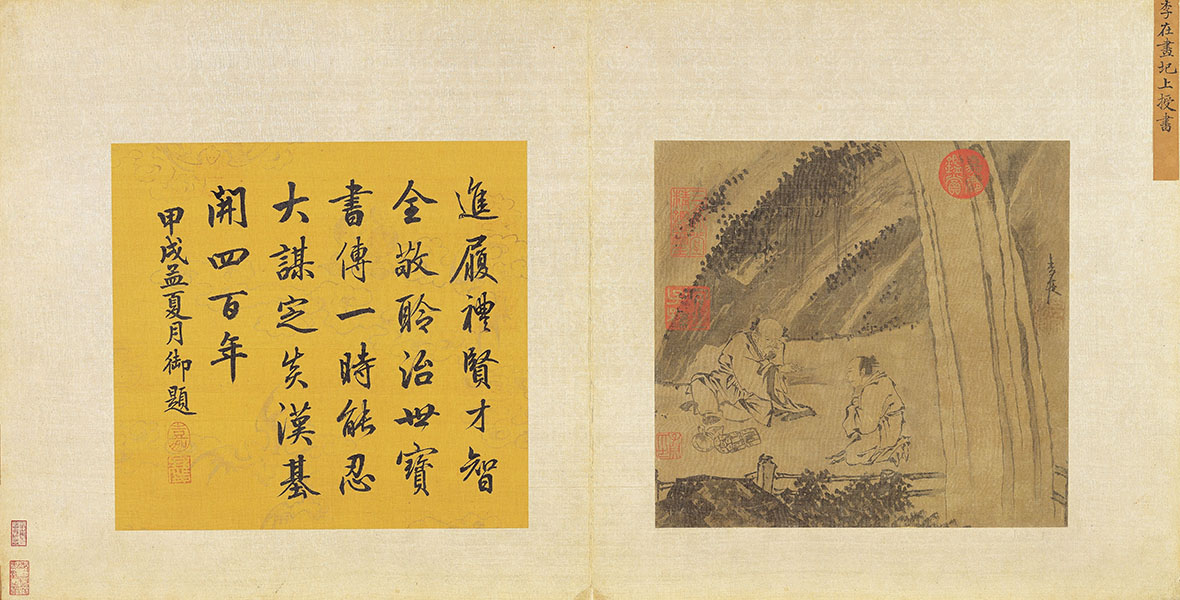 李在畫圯上授書
李在
進履禮賢才智
全敬聆治世寶
書傳一時能忍
大謀定炎漢基
開四百年
甲戌孟夏月御題